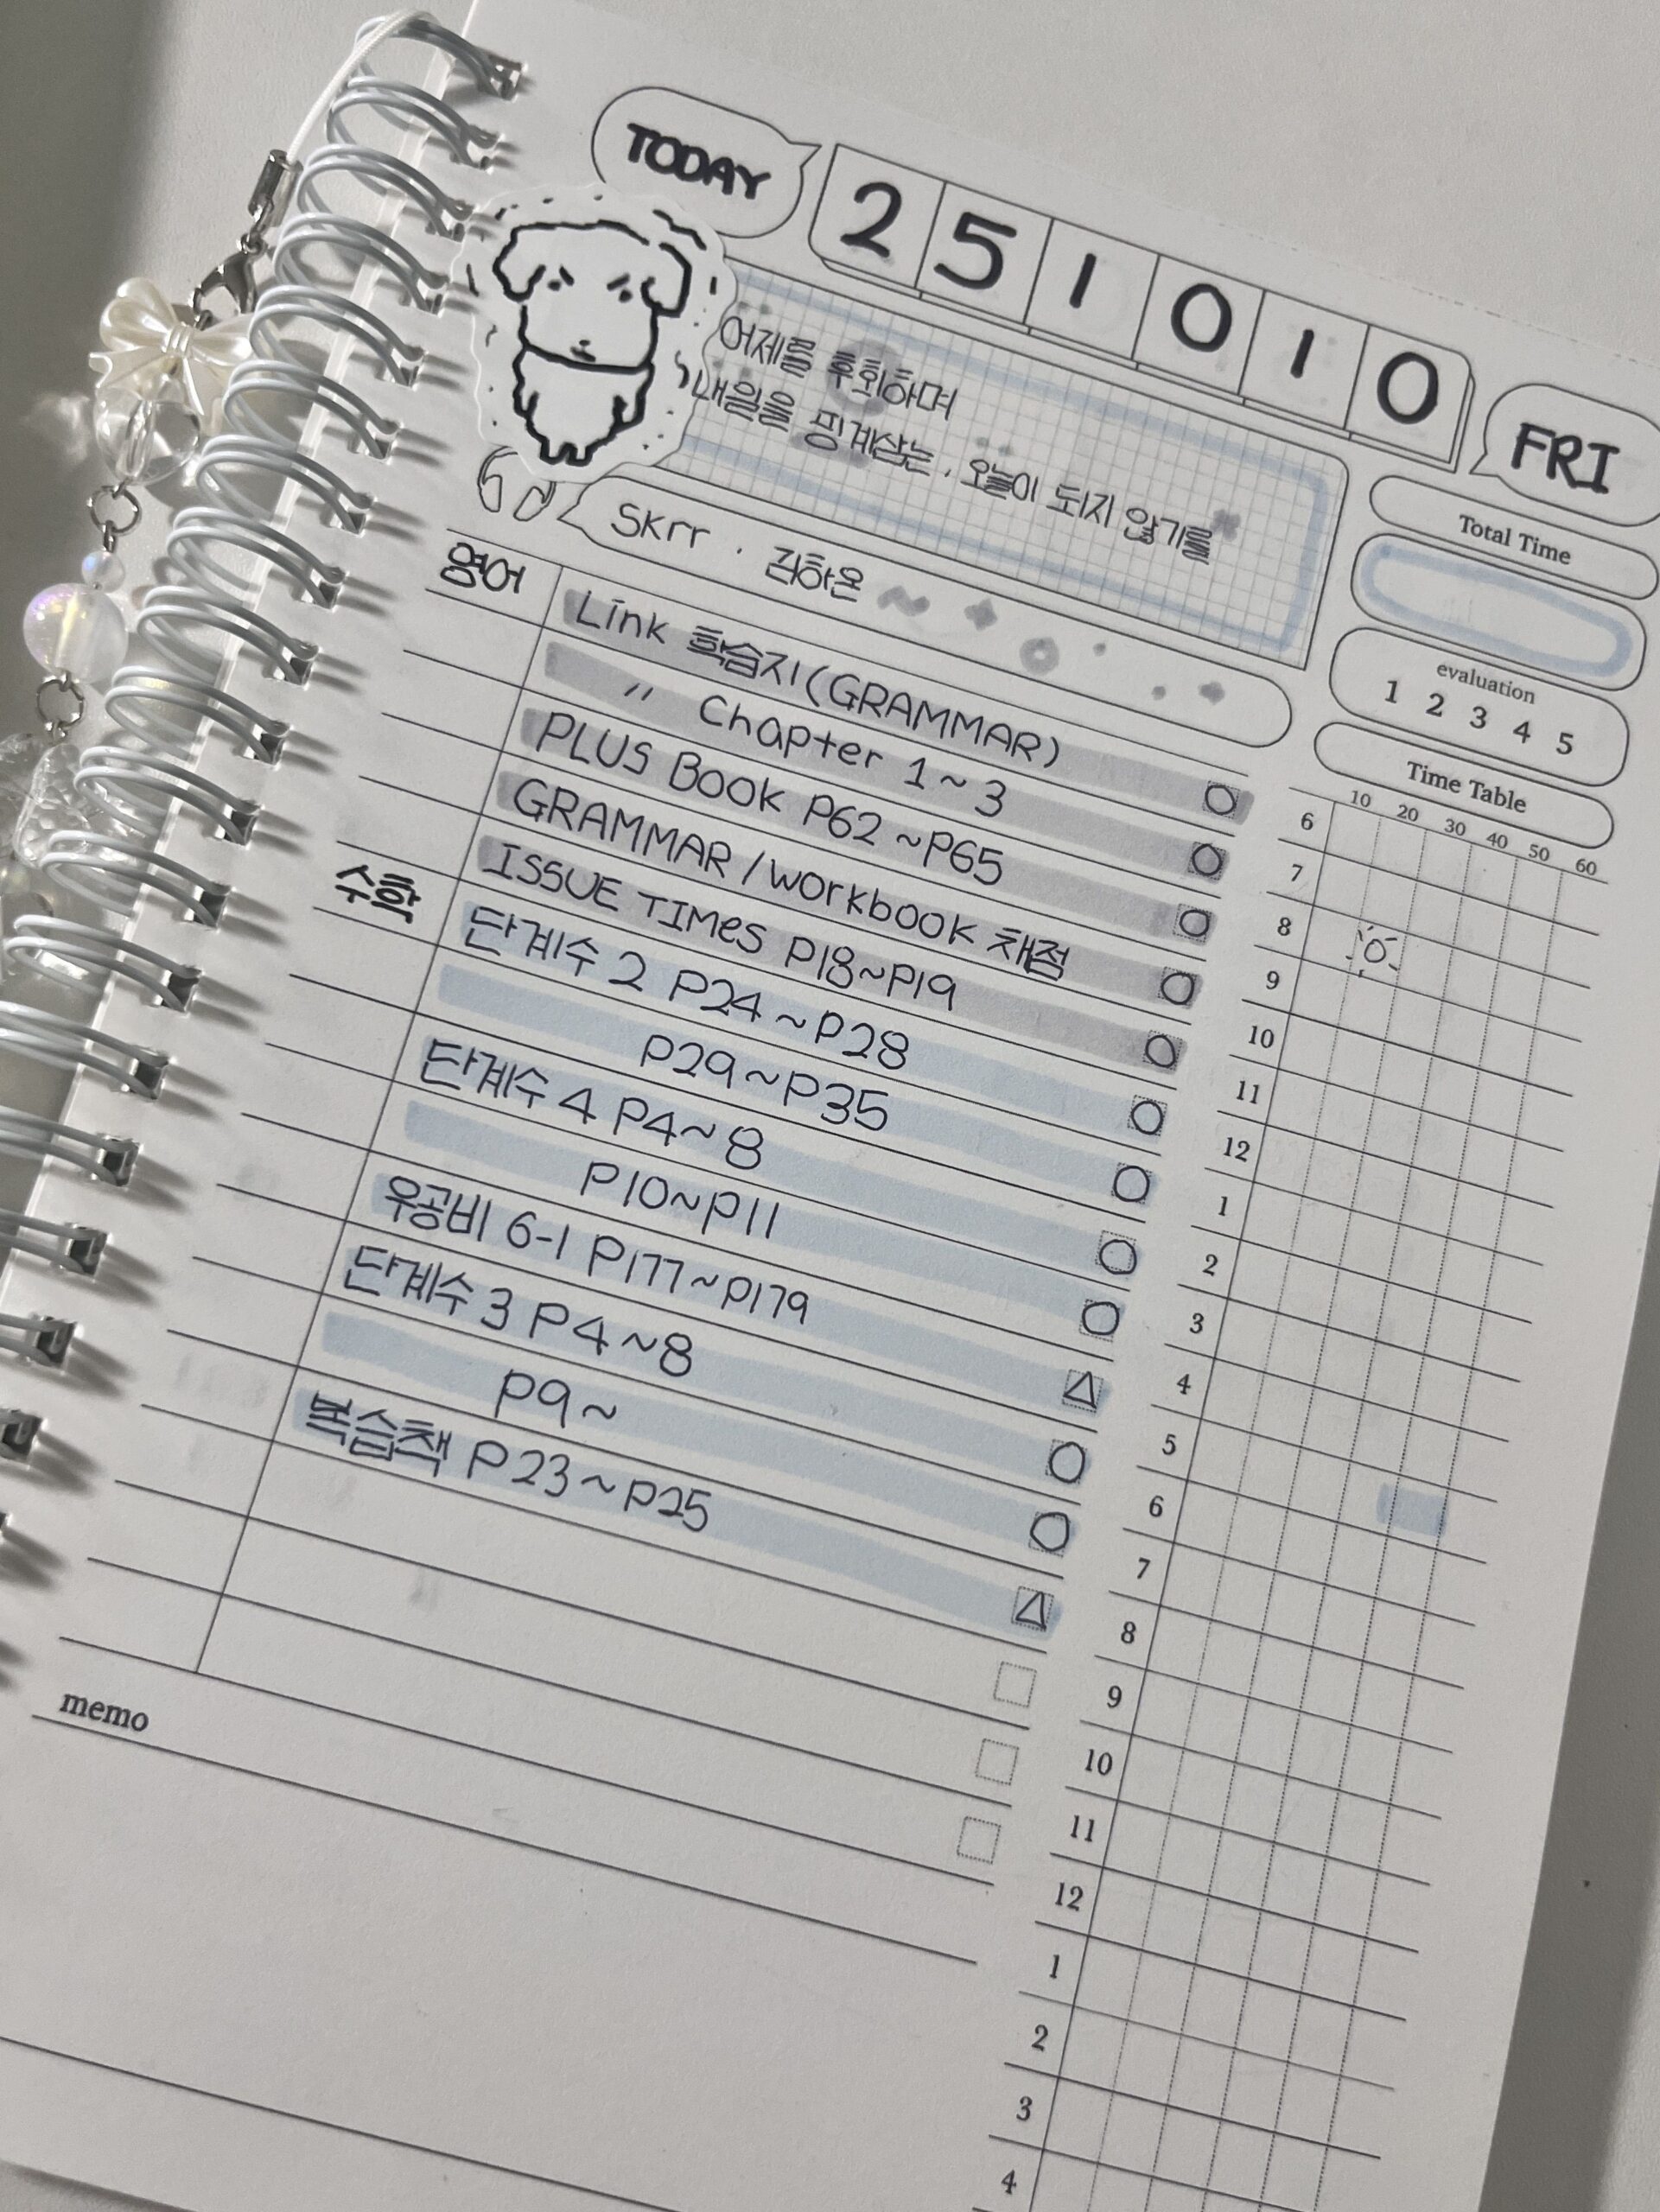 TODAY
251010
FRI
어제를 후회하며
내일을 핑계삼는, 오늘이 되지 않기를
Skrr . 김하온
Total Time
evaluation
1 2 3 4 5
Time Table
영어
Link 학습지(GRAMMAR)
〃 Chapter 1~3
PLUS Book P62~P65
GRAMMAR/workbook 채점
ISSUE TIMes P18~P19
수학
단계수 2 P24~P28
P29~P35
단계수 4 P4~8
P10~P11
우공비 6-1 P177~P179
단계수 3 P4~8
P9~
복습책 P23~P25
memo
10 20 30 40 50 60
6
7
8
9
10
11
12
1
2
3
4
5
6
7
8
9
10
11
12
1
2
3
4